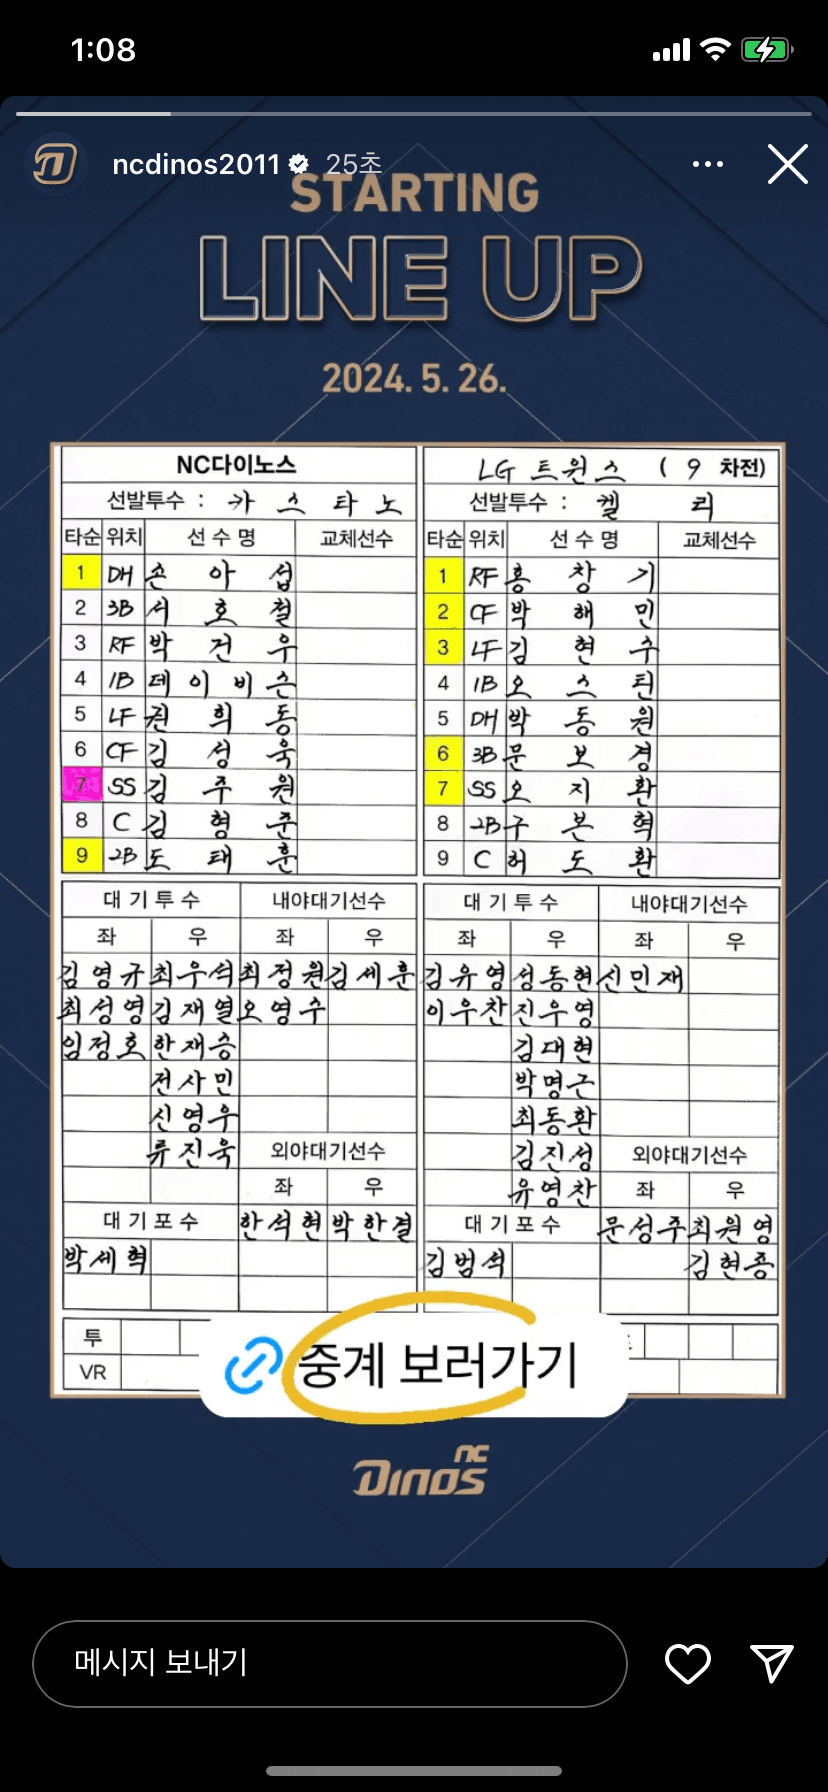 1:08
ncdinos2011 25초
STARTING
LINE UP
2024. 5. 26.
NC다이노스
선발투수 : 카스타노
타순 위치 선수명 교체선수
1 DH 손아섭
2 3B 서호철
3 RF 박건우
4 1B 데이비슨
5 LF 권희동
6 CF 김성욱
7 SS 김주원
8 C 김형준
9 2B 도태훈
대기투수 내야대기선수
좌 우 좌 우
김영규 최우석 최정원 김세훈
최성영 김재열 오영수
임정호 한재승
전사민
신영우
류진욱 외야대기선수
좌 우
대기포수 한석현 박한결
박세혁
투
VR
LG 트윈스 ( 9 차전)
선발투수 : 켈리
타순 위치 선수명 교체선수
1 RF 홍창기
2 CF 박해민
3 LF 김현수
4 1B 오스틴
5 DH 박동원
6 3B 문보경
7 SS 오지환
8 2B 구본혁
9 C 허도환
대기투수 내야대기선수
좌 우 좌 우
김유영 성동현 신민재
이우찬 진우영
김대현
박명근
최동환
김진성 외야대기선수
유영찬 좌 우
대기포수 문성주 최원영
김범석 김현종
중계 보러가기
NC
DINOS
메시지 보내기